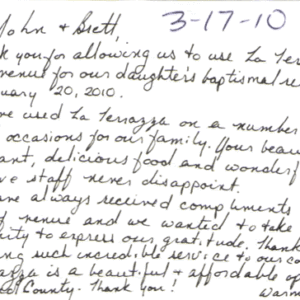 John & Brett,
3-17-10
k you for allowing us to use La Terra
venue for our daughter's baptismal re
uary 20, 2010.
ve used La Terrazza on a number
occasions for our family. Your beau
ant, delicious food and wonderf
ve staff never disappoint.
ve always received compliments
of venue and we wanted to take
ity to express our gratitude. Thank
ing such incredible service to our co
azza is a beautiful & affordable o
County. Thank you!
Warm